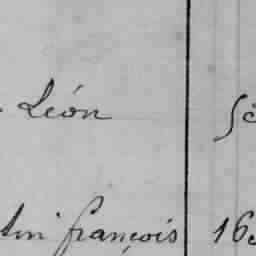 Léon
tin françois 16